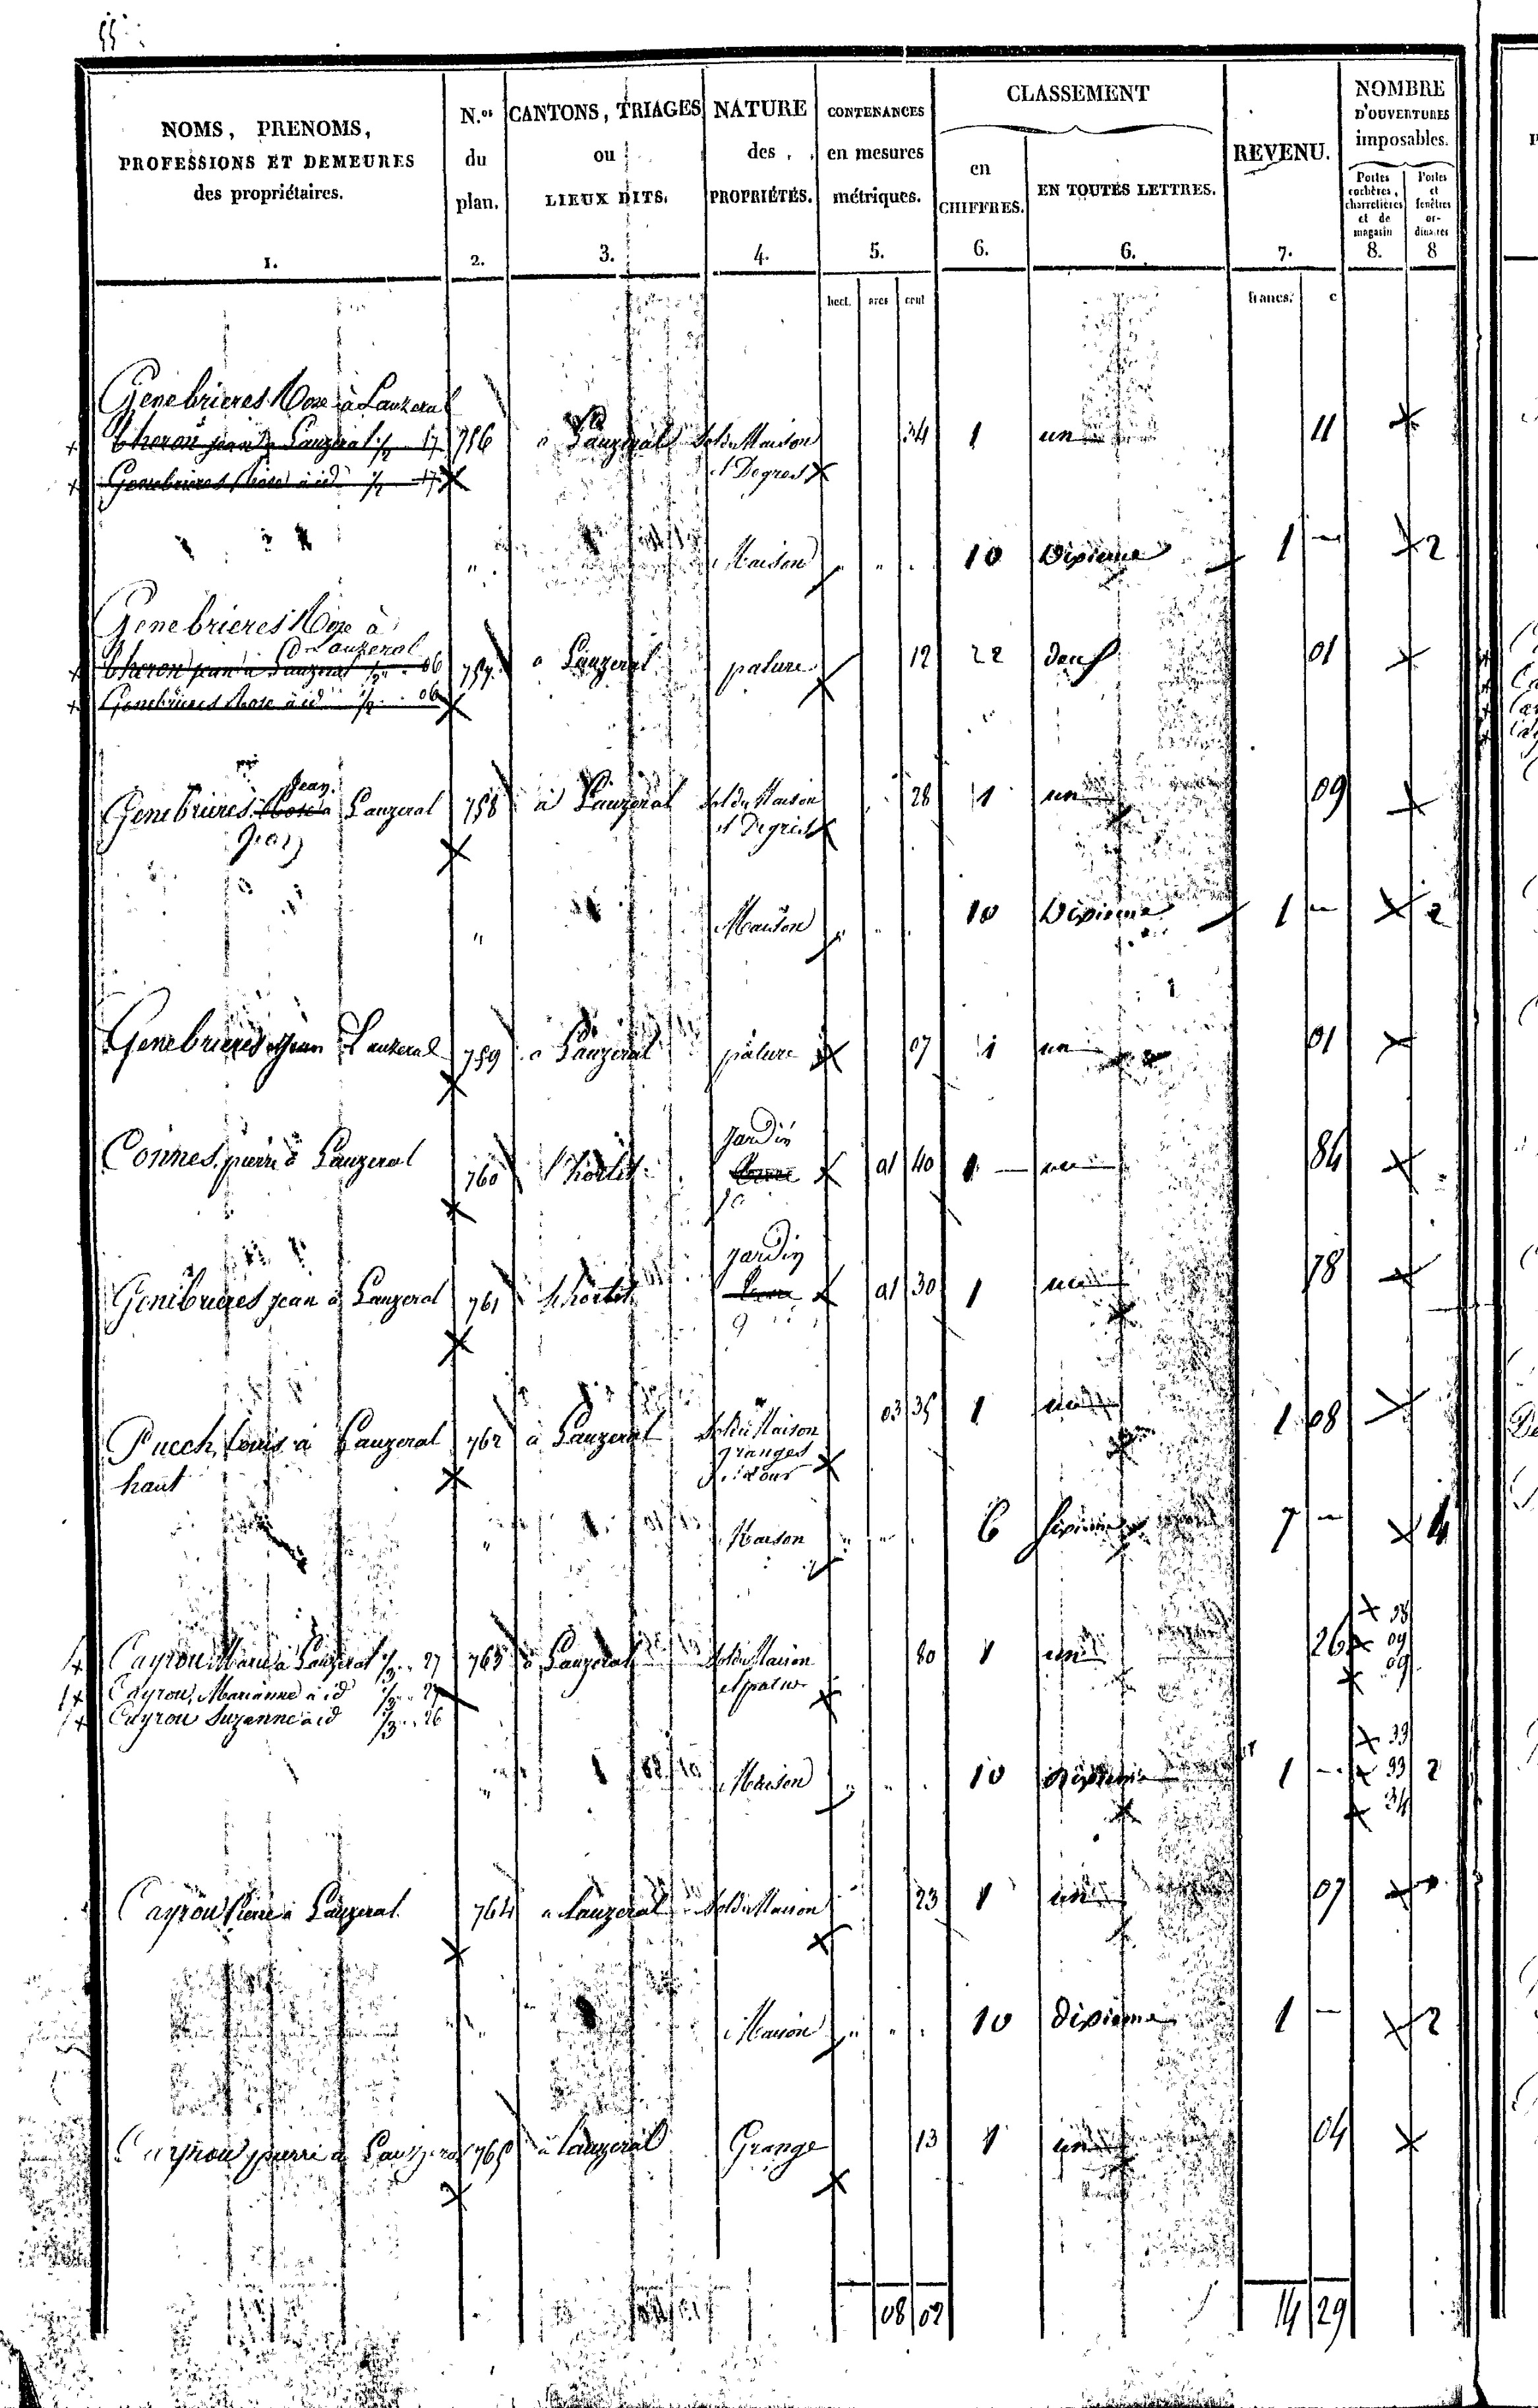 55
NOMS, PRENOMS, PROFESSIONS ET DEMEURES des propriétaires. 1.
N.os du plan. 2.
CANTONS, TRIAGES ou LIEUX DITS. 3.
NATURE des PROPRIÉTÉS. 4.
CONTENANCES en mesures métriques. 5.
CLASSEMENT
en CHIFFRES. 6.
EN TOUTES LETTRES. 6.
REVENU. 7.
NOMBRE D'OUVERTURES imposables.
Portes cochères, charretières et de magasin 8.
Portes et fenêtres ordinaires 8
hect. ares cent francs. c
Genebrieres Rose à Lauzeral
Theron jean à Lauzeral 1/2 17 756 a Lauzeral Sol du Maison 34 1 un 11
Genebrieres Rose à id 1/2 17 et Degres
" Maison " " " 10 Dixieme 1 — 2
Genebrieres Rose à
Lauzeral
Theron jean à Lauzeral 1/2 " 06 757 a Lauzeral pature 12 2 deux 01
Genebrieres Rose à id 1/2 06
Jean
Genebrieres Rose à Lauzeral 758 à Lauzeral Sol du Maison 28 1 un 09
Jean et Degres
" Maison " " " 10 Dixieme 1 — 2
Genebrieres Jean Lauzeral 759 a Lauzeral pature 07 1 un 01
jardin
Connes pierre à Lauzeral 760 l'hortet 01 40 1 un 84
jardin
Genebrieres jean à Lauzeral 761 l'hortet 01 30 1 un 78
Puech Louis à Lauzeral 762 à Lauzeral Sol du Maison 03 35 1 un 1 08
haut granges
" Maison " " " 6 Sixieme 7 — 4
Cayrou Marie à Lauzeral 1/3 " 27 763 à Lauzeral Sol du Maison 80 1 un 26 08
Cayrou Marianne à id 1/3 " 27 et patus 09
Cayrou Suzanne à id 1/3 " 26 09
33
" Maison " " " 10 Dixieme 1 — 33 2
34
Cayrou Pierre à Lauzeral 764 a Lauzeral Sol du Maison 23 1 un 07
" Maison " " " 10 dixieme 1 — 2
Cayrou pierre à Lauzeral 765 à Lauzeral Grange 13 1 un 04
08 02 14 29